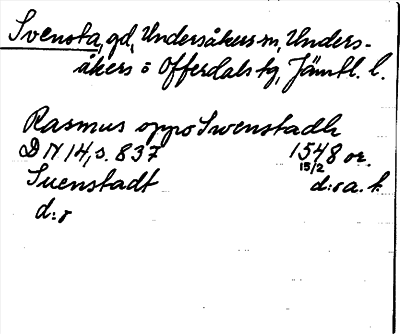 Svensta, gd, Undersåkers sn, Unders-
åkers o Offerdals tg, Jämtl. l.
Rasmus oppo Swenstadh
DN 14, s. 837 1548 or.
15/2
Suenstadt d:o a. k
d:o